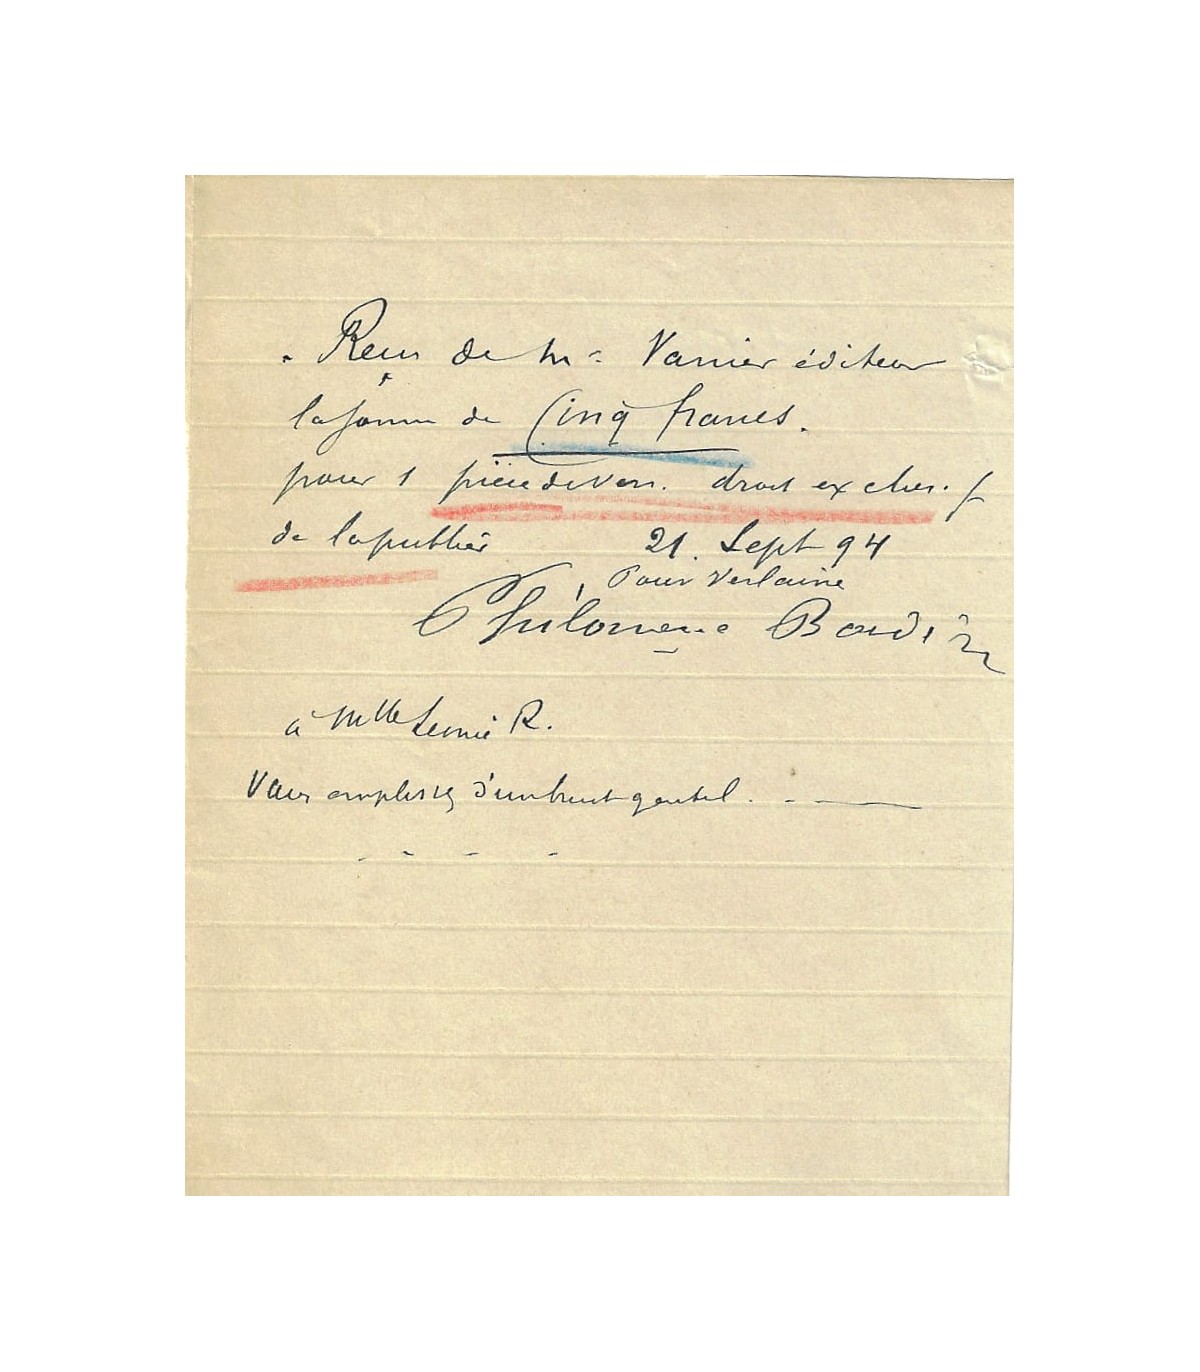 Reçu de Mr Vanier éditeur
la somme de Cinq francs.
pour 1 pièce de vers. droit exclusif
de la publier 21. Sept 94
Pour Verlaine
Philomene Boudin
à Mlle Léonie R.
Vous emplissez d'un bruit gentil. . . ——
. - - -